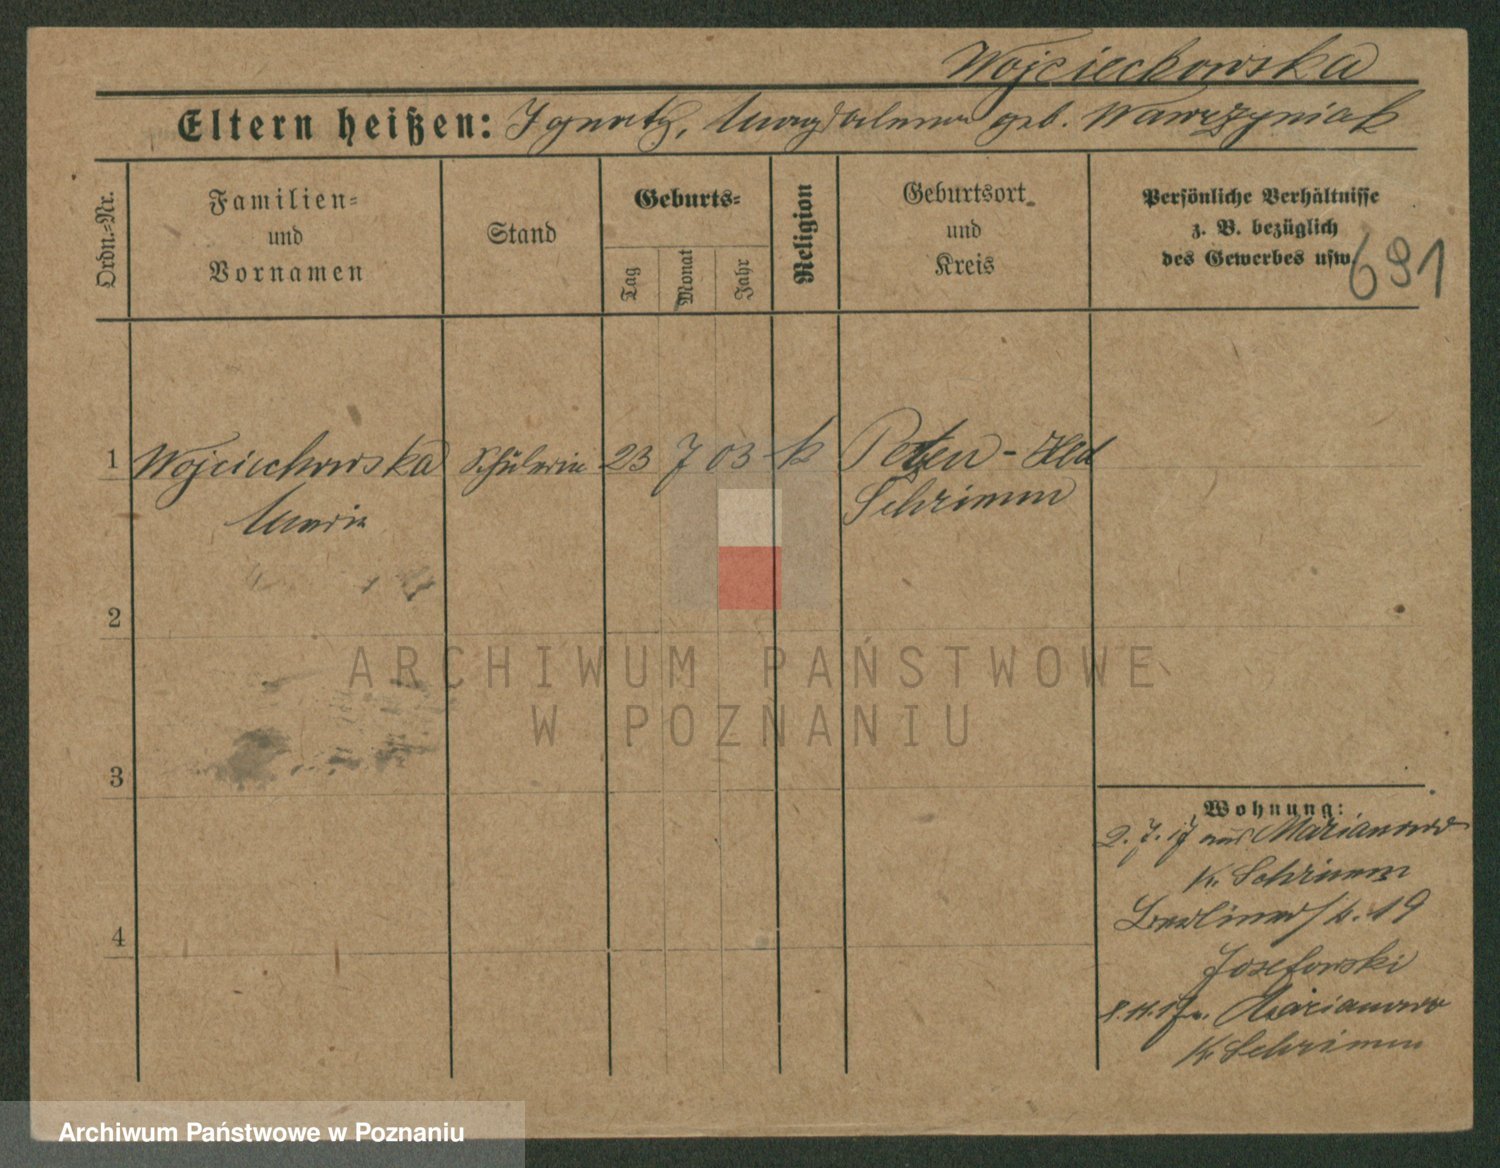 Wojciechowska
Eltern heißen: Ignatz, Magdalena geb. Wawrzyniak
Ordn.-Nr.
Familien-
und
Vornamen
Stand
Geburts-
Tag
Monat
Jahr
Religion
Geburtsort
und
Kreis
Persönliche Verhältnisse
z. B. bezüglich
des Gewerbes usw.
691
1 Wojciechowska Schülerin 23 7 03 k Hld
Maria Schrimm
2
ARCHIWUM PAŃSTWOWE
W POZNANIU
3
Wohnung:
2.7.17 aus Marianowo
K. Schrimm
Berlinerstr. 19
Josefowski
8.11.17 n. Marianowo
K. Schrimm
4
Archiwum Państwowe w Poznaniu